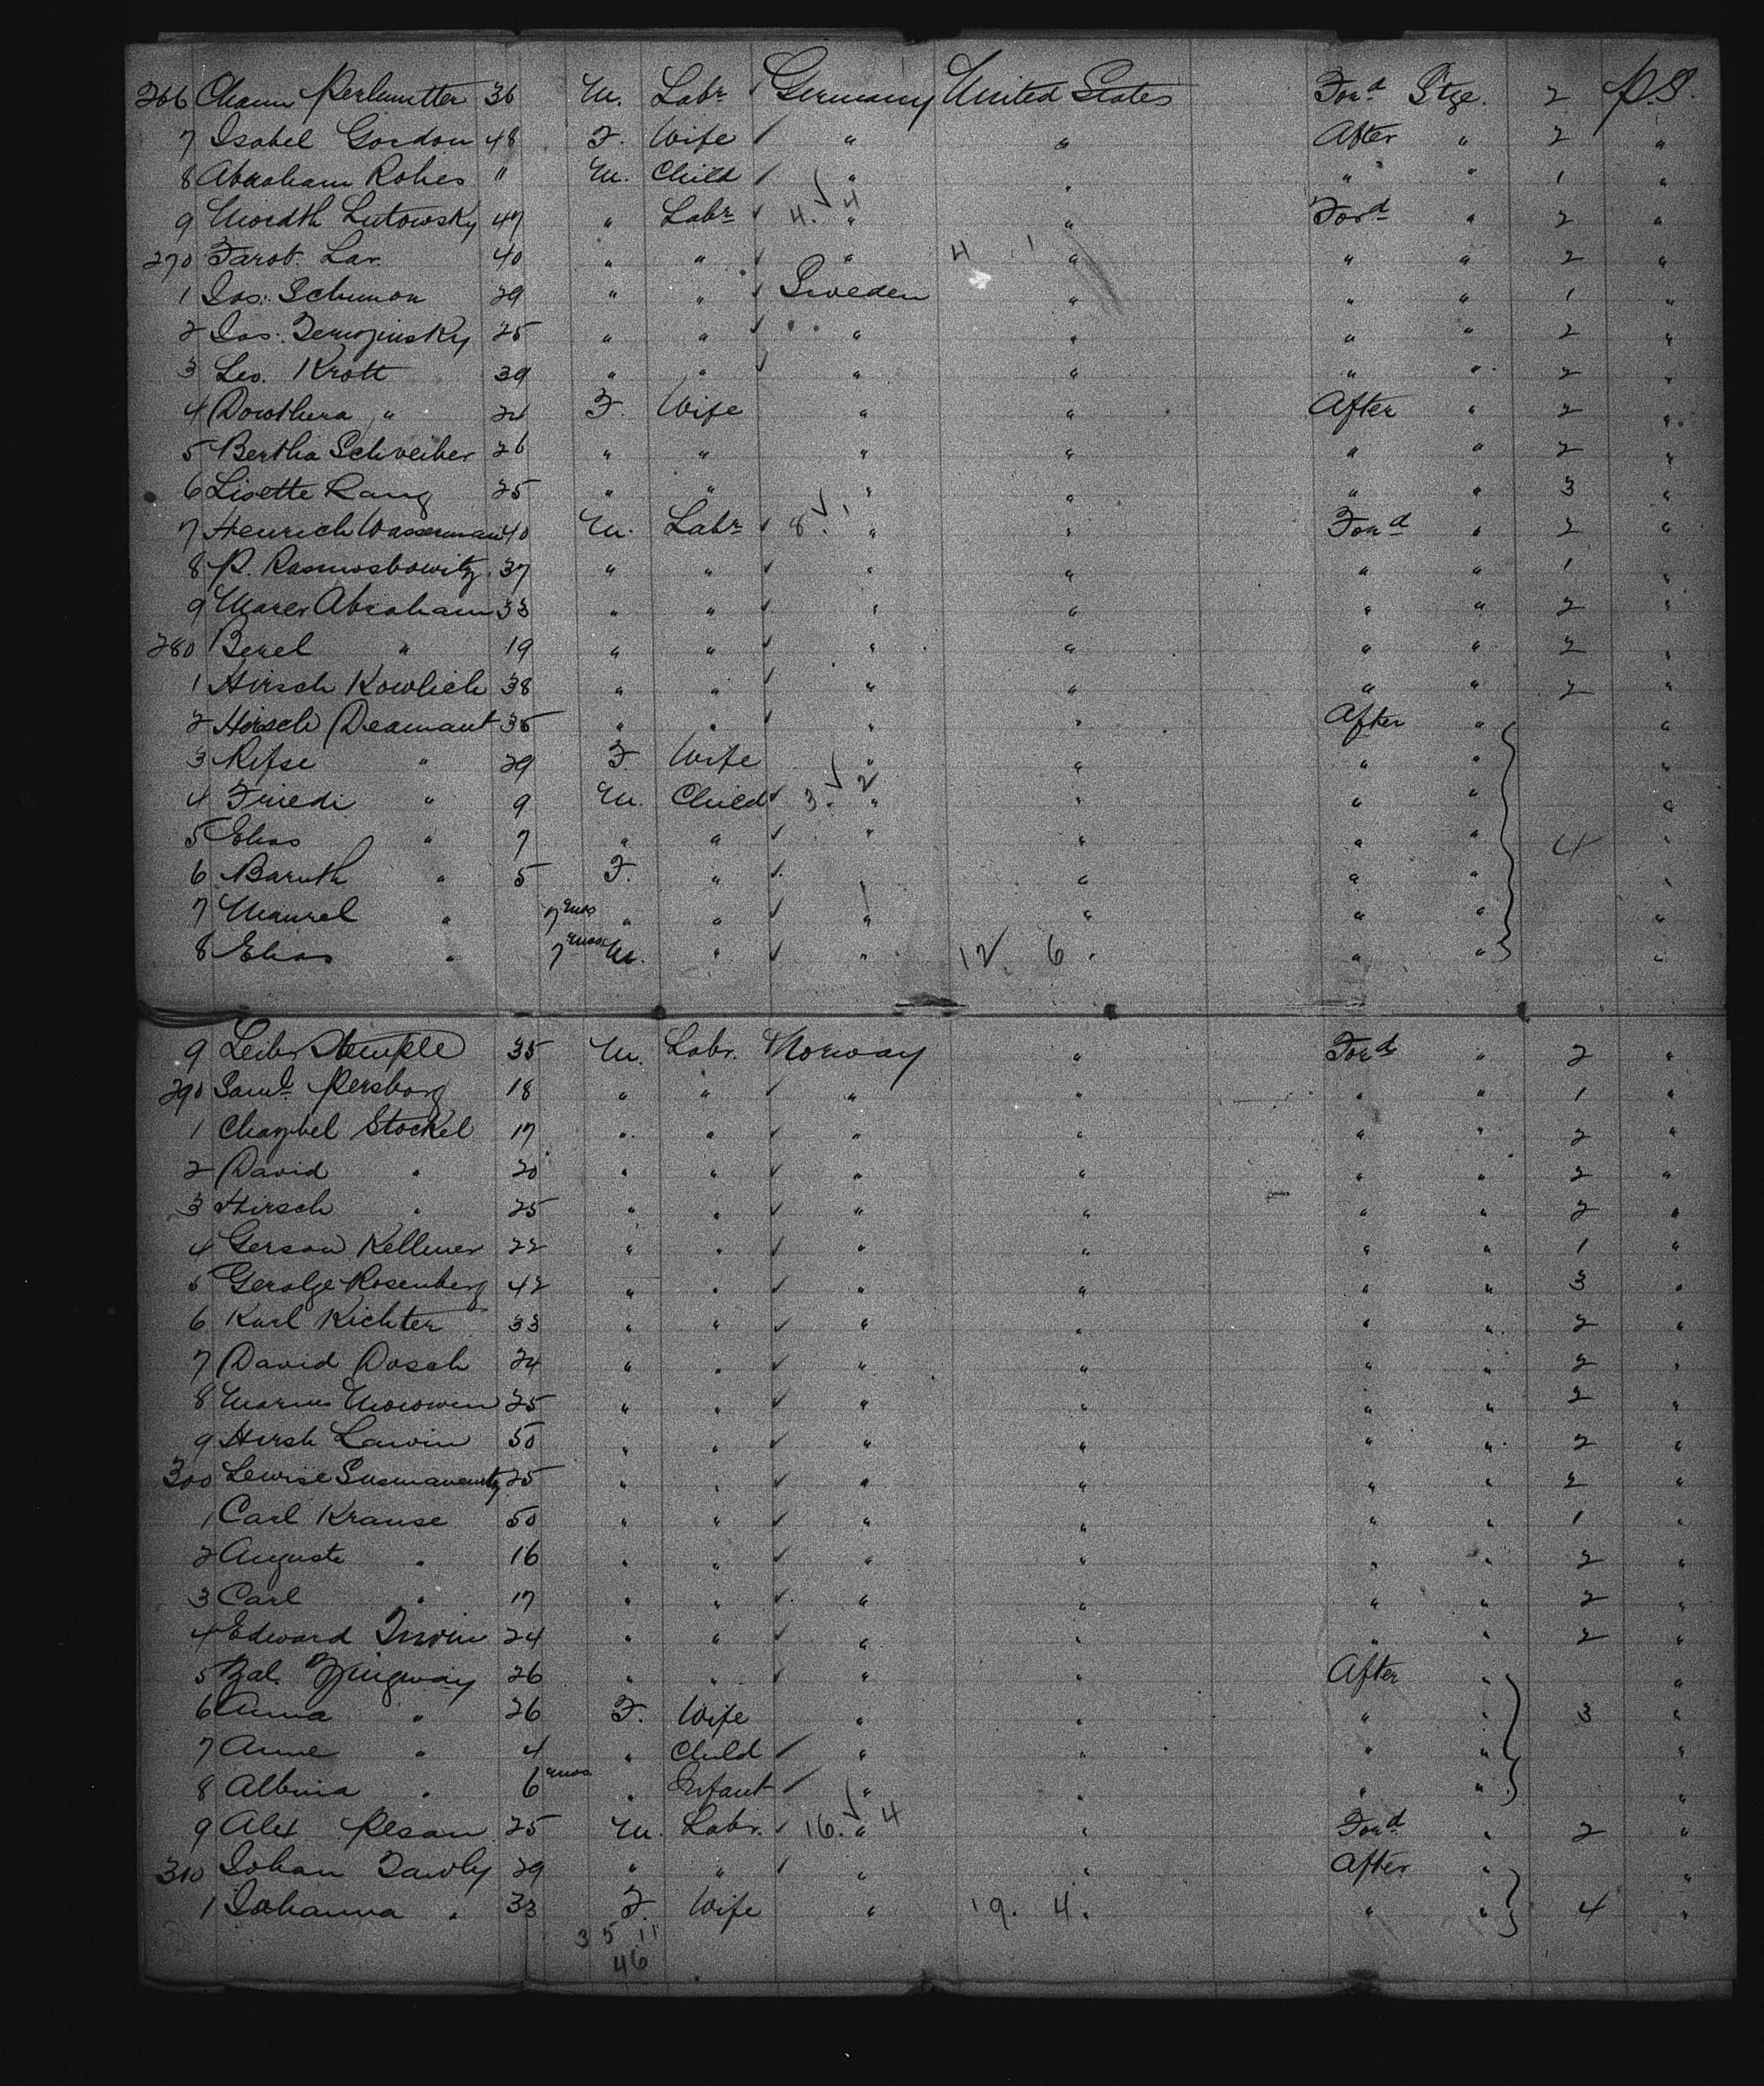 266 Chaim Perlmutter 36 M. Labr Germany United States Ford Stge. 2 P.S.
7 Isabel Gordon 48 F. Wife " " After " 2 "
8 Abraham Rohes " M. Child " " " " 1 "
9 Mordth Lutowsky 47 " Labr 4. 4 " " Ford " 2 "
270 Tarot. Lav. 40 " " " 4 1 " " " 2 "
1 Jos. Schumon 29 " " Sweden " " " 1 "
2 Jos. 25 " " " " " " 2 "
3 Leo. Krott 39 " " " " " " 2 "
4 Dorothera " 24 F. Wife " " After " 2 "
5 Bertha Schreiber 26 " " " " " " 2 "
6 Lisette Rang 25 " " " " " " 3 "
7 Henrich Wasserman 40 M. Labr 8. 1 " " Ford " 2 "
8 P. 37 " " " " " " 1 "
9 Marer Abraham 33 " " " " " " 2 "
280 Berel " 19 " " " " " " 2 "
1 Hirsch Kowlich 38 " " " " " " 2 "
2 Hirsch Deamant 35 " " " " After " "
3 Rifse " 29 F. Wife " " " " "
4 Friedi " 9 M. Child 3. 2 " " " " "
5 Elias " 7 " " " " " " 4 "
6 Baruth " 5 F. " " " " " "
7 Maurel " 7 mos " " " " " " "
8 Elias " 7 mos M. " " 12 6 " " " "
9 Leib Stemple 35 M. Labr. Norway " Ford " 2 "
290 Saml. Persborg 18 " " " " " " 1 "
1 Chaybel Stockel 17 " " " " " " 2 "
2 David " 20 " " " " " " 2 "
3 Hirsch " 25 " " " " " " 2 "
4 Gerson Kellmer 22 " " " " " " 1 "
5 Gerolge Rosenberg 42 " " " " " " 3 "
6 Karl Richter 33 " " " " " " 2 "
7 David Dosch 24 " " " " " " 2 "
8 25 " " " " " " 2 "
9 Hirsh Lawin 50 " " " " " " 2 "
300 Lewise 25 " " " " " " 2 "
1 Carl Krause 50 " " " " " " 1 "
2 Auguste " 16 " " " " " " 2 "
3 Carl " 17 " " " " " " 2 "
4 Edward Irwin 24 " " " " " " 2 "
5 Zal. 26 " " " " After " "
6 Anna " 26 F. Wife " " " " 3 "
7 Anne " 4 " Child " " " " "
8 Albina " 6 mos " Infant " " " " "
9 Alex Pesan 25 M. Labr. 16. 4 " " Ford " 2 "
310 Johan Tawly 29 " " " " After " "
1 Johanna " 33 F. Wife " 19. 4. " " 4 "
3 5 11
46